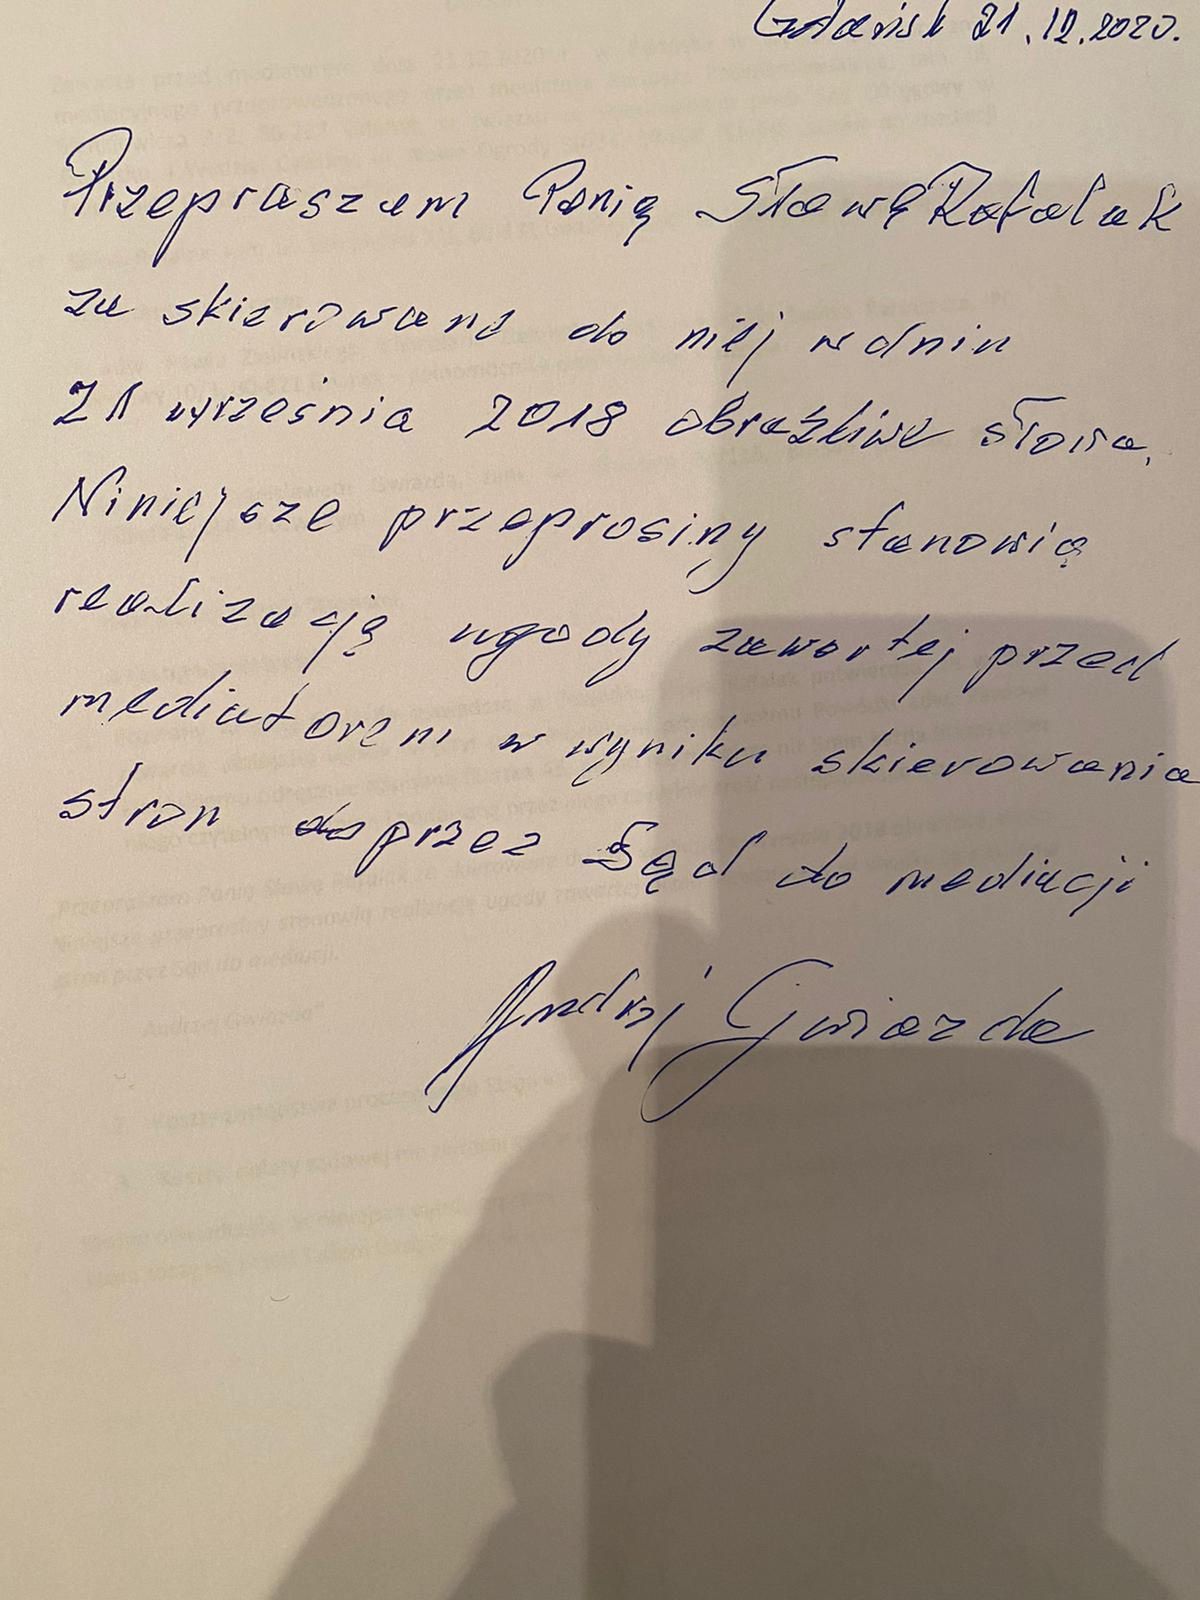 Gdańsk 21.12.2020.
Przepraszam Panią Sławę Ratalak
za skierowane do niej w dniu
21 września 2018 obraźliwe słowa.
Niniejsze przeprosiny stanowią
realizację ugody zawartej przed
mediatorem w wyniku skierowania
stron przez Sąd do mediacji
Andrzej Gwiazda